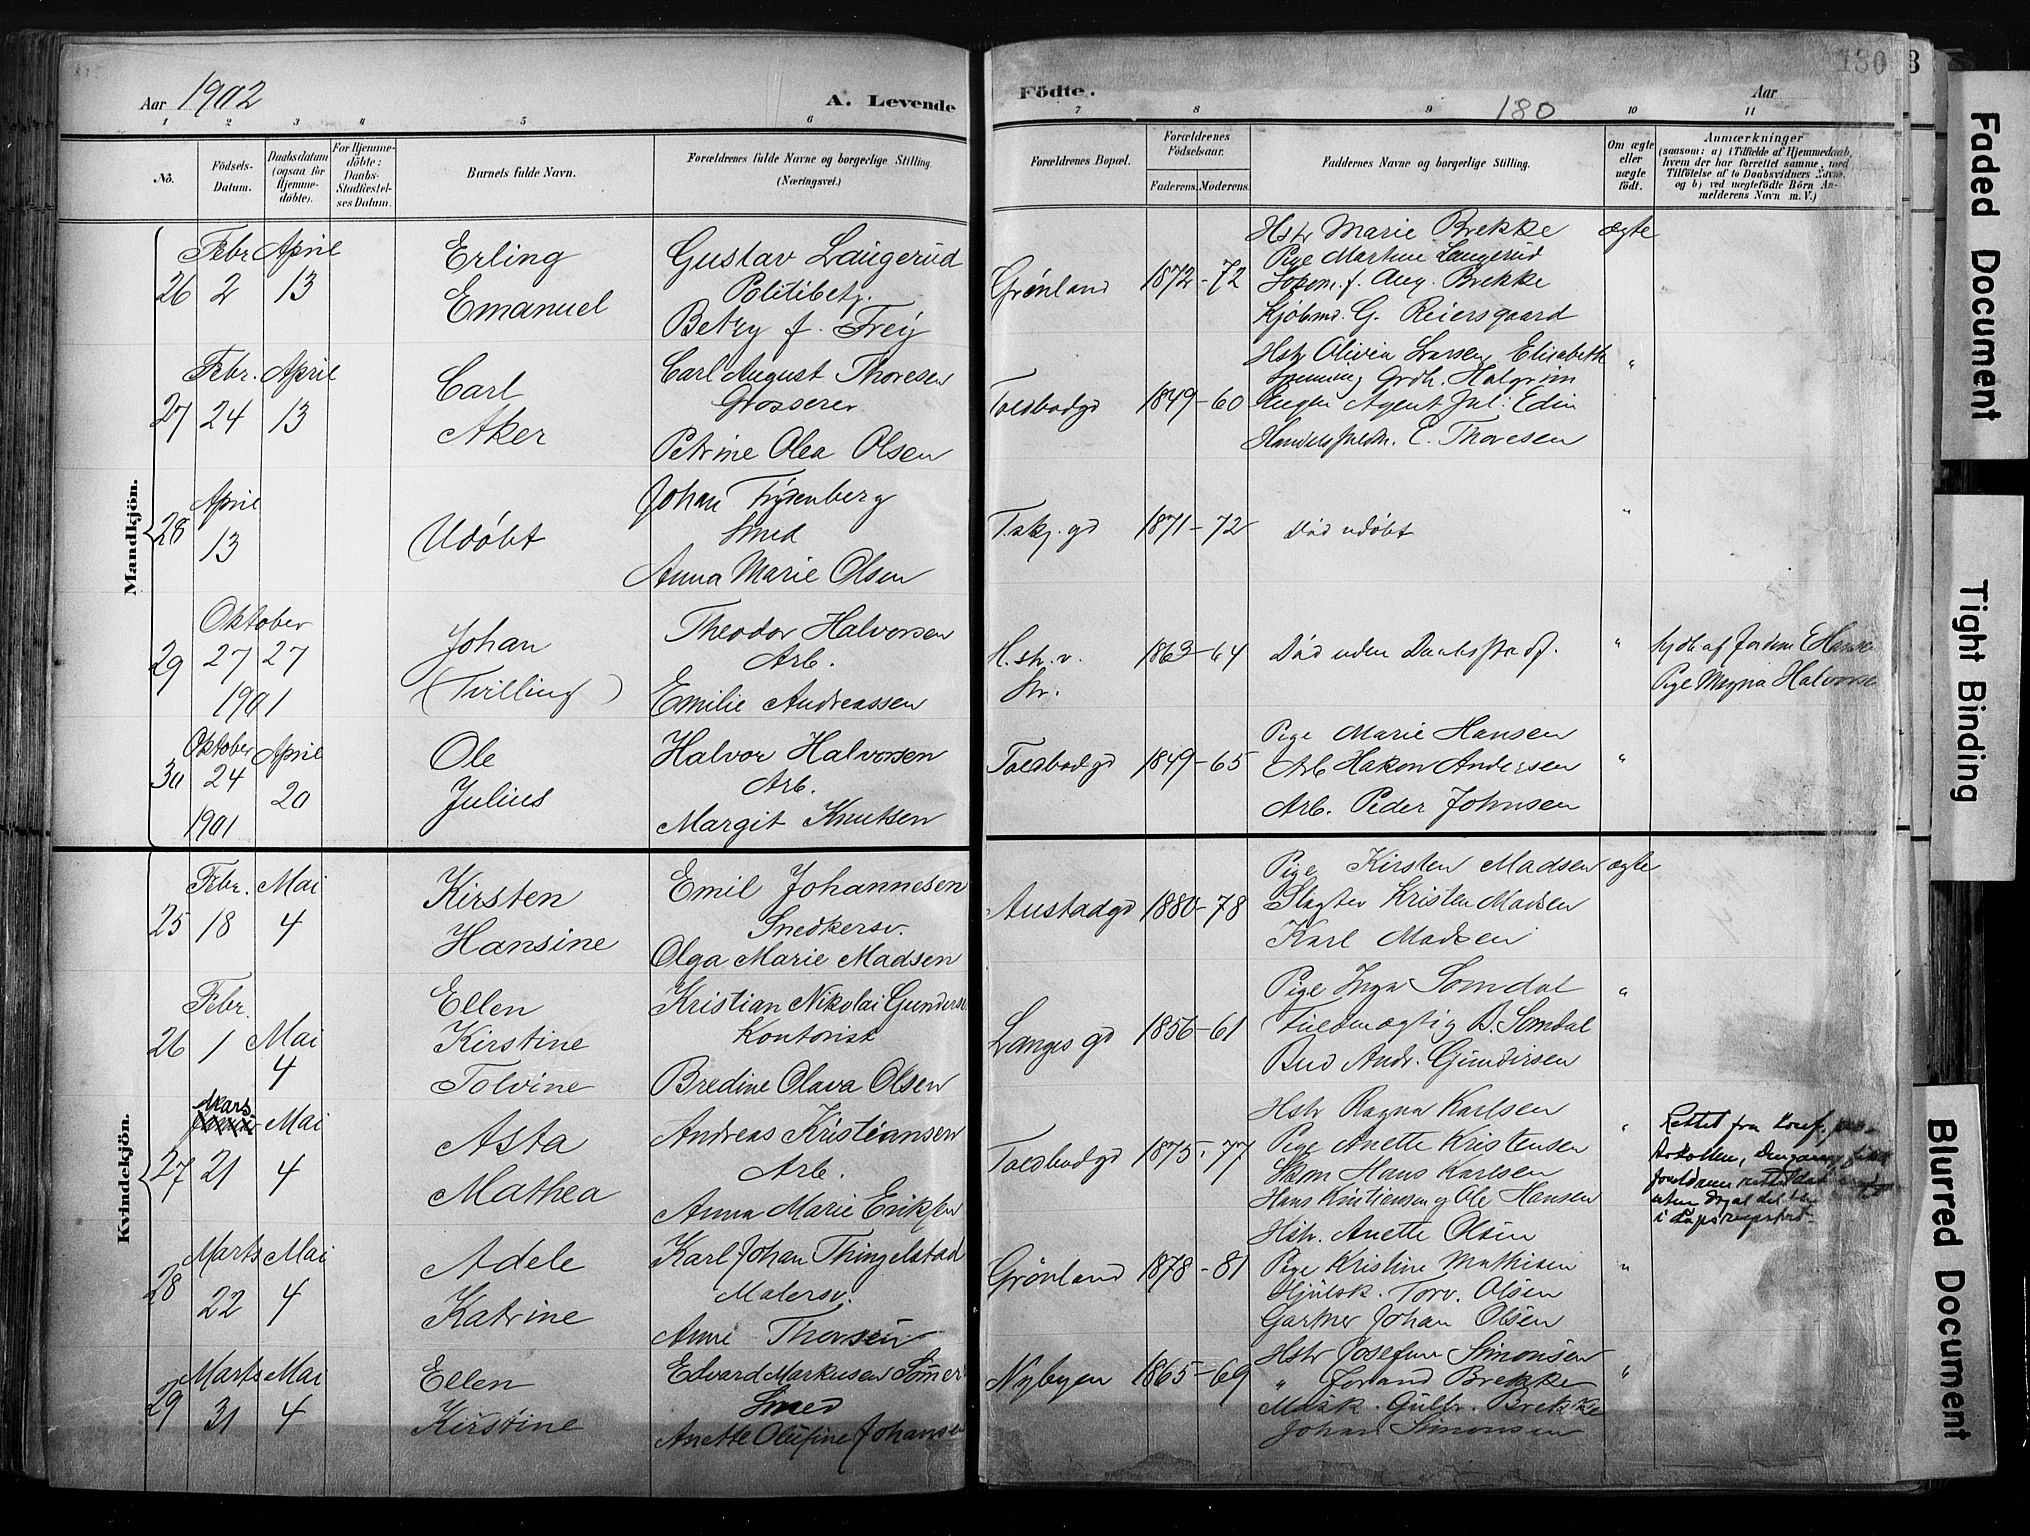 Aar 1902
A. Levende
Födte.
180
180
Aar
1 2 3 4 5 6 7 8 9 10 11
No.
Födsels-Datum.
Daabsdatum (ogsaa for Hjemmedöbte).
For Hjemmedöbte: Daabs-Stadfæstelses Datum.
Barnets fulde Navn.
Forældrenes fulde Navne og borgerlige Stilling.
(Næringsvei.)
Forældrenes Bopæl.
Forældrenes Födselsaar.
Faderens. Moderens.
Faddernes Navne og borgerlige Stilling.
Om ægte eller uægte födt.
Anmærkninger
(saasom: a) i Tilfælde af Hjemmedaab, hvem der har forrettet samme, med Tilföielse af to Daabsvidners Navne, og b) ved uægtefödte Börn Anmelderens Navn m. V.)
Mandkjön.
26 Febr 2 April 13
Erling
Emanuel
Gustav Laugerud
Politibetj.
Betzy f. Frey
Grønland 1872-72
Hstr Marie Brekke
Pige Martine Laugerud
f. Aug. Brekke
Kjöbmd. G. Reiersgaard
ægte
27 Febr. 24 April 13
Carl
Aker
Carl August Thoresen
Grosserer
Petrine Olea Olsen
Toldbodgd 1849-60
Hstr Olivia Larsen, Elisabeth
Grdb. Halgrim
Agent Jul. Edin
E. Thoresen
"
28 April 13
Udøbt
Johan Frydenberg
Smed
Anna Marie Olsen
T.skj.gd 1871-72
Død udøbt
"
29 Oktober 27 27
1901
Johan
(Tvilling)
Theodor Halvorsen
Arb.
Emilie Andreassen
H.str.v. 1863-64
Død uden Daabsstadf.
"
hjdb af Jordm E Hanse
Pige Magna Halvorse
30 Oktober 24 April 20
1901
Ole
Julius
Halvor Halvorsen
Arb.
Margit Knutsen
Toldbodgd 1849-65
Pige Marie Hansen
Arb Hakon Andersen
Arb. Peder Johnsen
"
Kvindekjön.
25 Febr. 18 Mai 4
Kirsten
Hansine
Emil Johannesen
Snedkersv.
Olga Marie Madsen
Austadgd 1880-78
Pige Kirsten Madsen
Slagter Kristen Madsen
Karl Madsen
ægte
26 Febr. 1 Mai 4
Ellen
Kirstine
Tolvine
Kristian Nikolai Gunders
Kontorist
Bredine Olava Olsen
Langes gd 1856-61
Pige Inga Somdal
Fuldmægtig B. Somdal
Bud Andr. Gundersen
"
27 Mars 21 Mai 4
Asta
Mathea
Andreas Kristiansen
Arb.
Anna Marie Eriksen
Toldbodgd 1875-77
Hstr Ragna Karlsen
Pige Anette Kristensen
Søm Hans Karlsen
Hans Kristiansen og Ole Hansen
"
Rettet fra
28 Marts 22 Mai 4
Adele
Katrine
Karl Johan Thingelstad
Malersv.
Anne Thorsen
Grönland 1878-81
Hstr. Anette Olsen
Pige Kristine Mathisen
Hjulsk. Torv. Olsen
Gartner Johan Olsen
"
29 Marts 31 Mai 4
Ellen
Kirstine
Edvard Markusen
Smed
Anette Olufine Johansen
Nybyen 1865-69
Hstr Josefine Simonsen
" Brekke
Gulbr. Brekke
Johan Simonsen
"
Faded Document
Tight Binding
Blurred Document